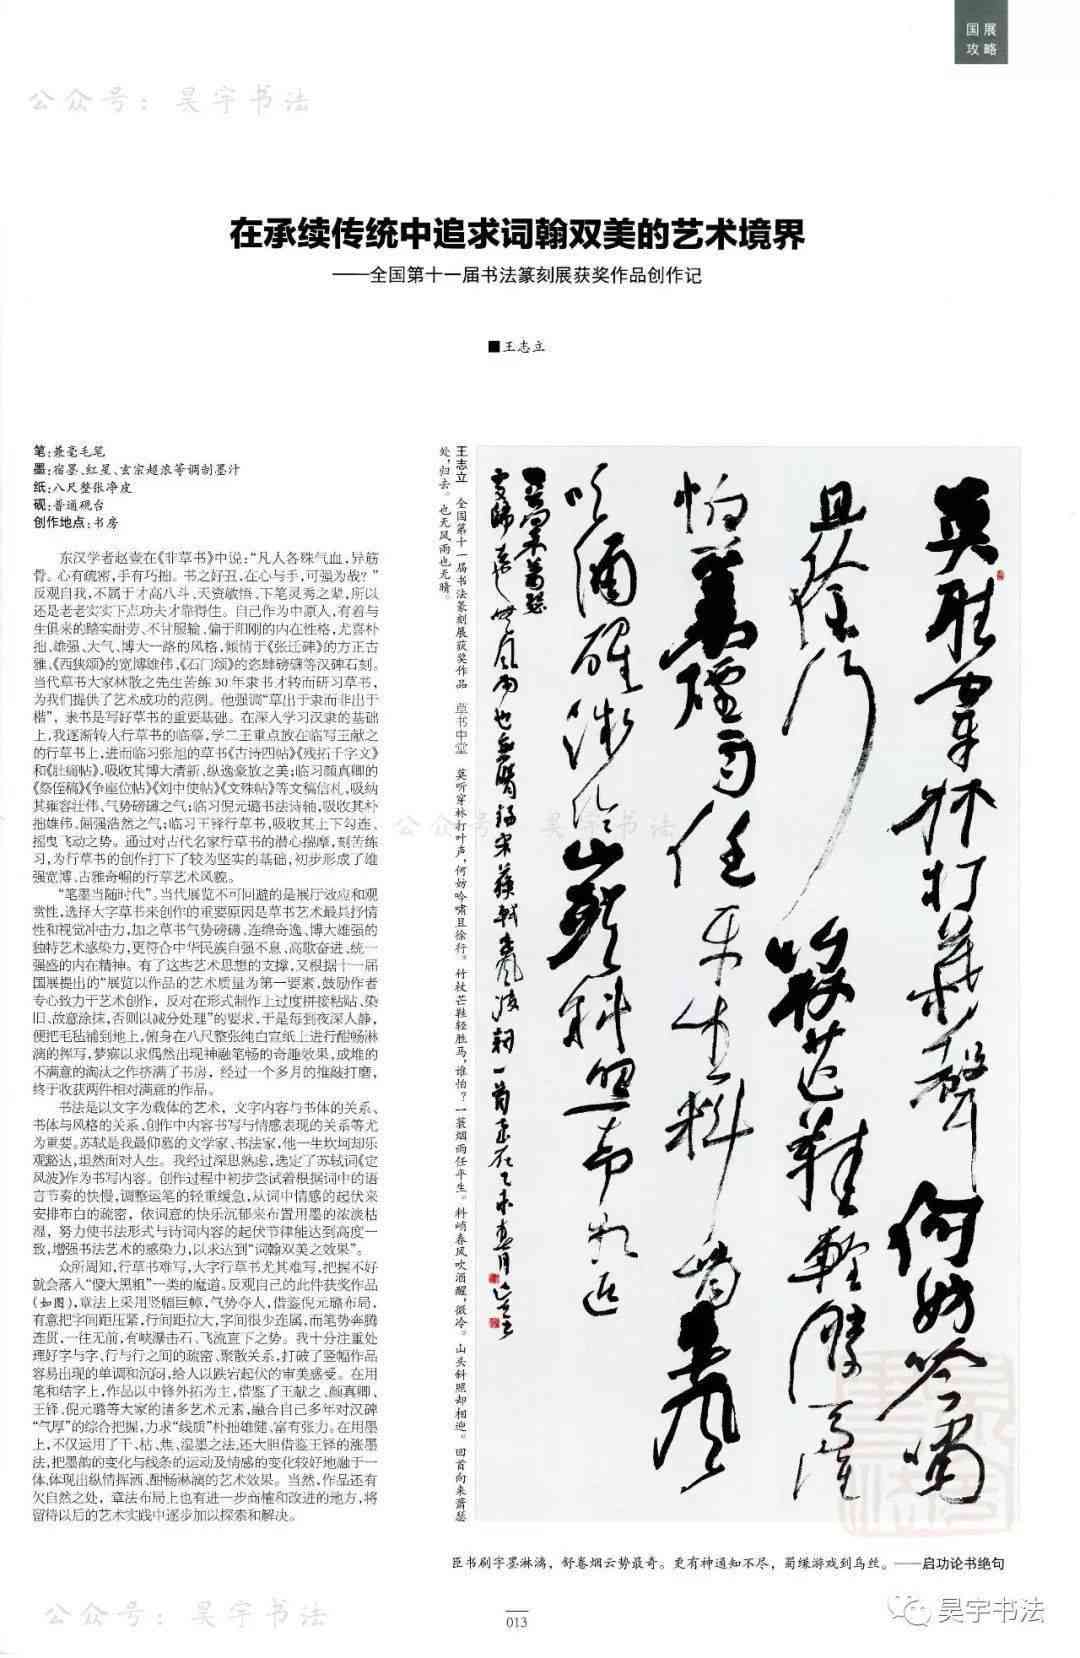 国展
攻略
公众号：昊宇书法
在承续传统中追求词翰双美的艺术境界
——全国第十一届书法篆刻展获奖作品创作记
■王志立
笔：兼毫毛笔
墨：宿墨、红星、玄宗超浓等调制墨汁
纸：八尺整张净皮
砚：普通砚台
创作地点：书房
东汉学者赵壹在《非草书》中说：“凡人各殊气血，异筋
骨。心有疏密，手有巧拙。书之好丑，在心与手，可强为哉？”
反观自我，不属于才高八斗、天资敏悟、下笔灵秀之辈，所以
还是老老实实下点功夫才靠得住。自己作为中原人，有着与
生俱来的踏实耐劳、不甘服输、偏于阳刚的内在性格，尤喜朴
拙、雄强、大气、博大一路的风格，倾情于《张迁碑》的方正古
雅、《西狭颂》的宽博雄伟、《石门颂》的恣肆磅礴等汉碑石刻。
当代草书大家林散之先生苦练30年隶书才转而研习草书，
为我们提供了艺术成功的范例。他强调“草出于隶而非出于
楷”，隶书是写好草书的重要基础。在深入学习汉隶的基础
上，我逐渐转入行草书的临摹，学二王重点放在临写王献之
的行草书上，进而临习张旭的草书《古诗四帖》《残拓千字文》
和《肚痛帖》，吸收其博大清新、纵逸豪放之美；临习颜真卿的
《祭侄稿》《争座位帖》《刘中使帖》《文殊帖》等文稿信札，吸纳
其雍容壮伟、气势磅礴之气；临习倪元璐书法诗轴，吸收其朴
拙雄伟、倔强浩然之气；临习王铎行草书，吸收其上下勾连、
摇曳飞动之势。通过对古代名家行草书的潜心揣摩，刻苦练
习，为行草书的创作打下了较为坚实的基础，初步形成了雄
强宽博、古雅奇崛的行草艺术风貌。
“笔墨当随时代”。当代展览不可回避的是展厅效应和观
赏性，选择大字草书来创作的重要原因是草书艺术最具抒情
性和视觉冲击力，加之草书气势磅礴、连绵奇逸、博大雄强的
独特艺术感染力，更符合中华民族自强不息、高歌奋进、统一
强盛的内在精神。有了这些艺术思想的支撑，又根据十一届
国展提出的“展览以作品的艺术质量为第一要素，鼓励作者
专心致力于艺术创作，反对在形式制作上过度拼接粘贴、染
旧、故意涂抹，否则以减分处理”的要求，于是每到夜深人静，
便把毛毡铺到地上，俯身在八尺整张纯白宣纸上进行酣畅淋
漓的挥写，梦寐以求偶然出现神融笔畅的奇趣效果，成堆的
不满意的淘汰之作挤满了书房，经过一个多月的推敲打磨，
终于收获两件相对满意的作品。
书法是以文字为载体的艺术，文字内容与书体的关系、
书体与风格的关系、创作中内容书写与情感表现的关系等尤
为重要。苏轼是我最仰慕的文学家、书法家，他一生坎坷却乐
观豁达，坦然面对人生。我经过深思熟虑，选定了苏轼词《定
风波》作为书写内容。创作过程中初步尝试着根据词中的语
言节奏的快慢，调整运笔的轻重缓急，从词中情感的起伏来
安排布白的疏密，依词意的快乐沉郁来布置用墨的浓淡枯
湿，努力使书法形式与诗词内容的起伏节律能达到高度一
致，增强书法艺术的感染力，以求达到“词翰双美之效果”。
众所周知，行草书难写，大字行草书尤其难写，把握不好
就会落入“傻大黑粗”一类的魔道。反观自己的此件获奖作品
（如图），章法上采用竖幅巨幛，气势夺人，借鉴倪元璐布局，
有意把字间距压紧，行间距拉大，字间很少连属，而笔势奔腾
连贯，一往无前，有峡瀑击石、飞流直下之势。我十分注重处
理好字与字、行与行之间的疏密、聚散关系，打破了竖幅作品
容易出现的单调和沉闷，给人以跌宕起伏的审美感受。在用
笔和结字上，作品以中锋外拓为主，借鉴了王献之、颜真卿、
王铎、倪元璐等大家的诸多艺术元素，融合自己多年对汉碑
“气厚”的综合把握，力求“线质”朴拙雄健、富有张力。在用墨
上，不仅运用了干、枯、焦、湿墨之法，还大胆借鉴王铎的涨墨
法，把墨韵的变化与线条的运动及情感的变化较好地融于一
体，体现出纵情挥洒、酣畅淋漓的艺术效果。当然，作品还有
欠自然之处，章法布局上也有进一步商榷和改进的地方，将
留待以后的艺术实践中逐步加以探索和解决。
王志立 全国第十一届书法篆刻展获奖作品 草书中堂 莫听穿林打叶声，何妨吟啸且徐行。竹杖芒鞋轻胜马，谁怕？一蓑烟雨任平生。料峭春风吹酒醒，微冷。山头斜照却相迎。回首向来萧瑟
处，归去。也无风雨也无晴。
莫听穿林打叶声何妨吟啸
且徐行 竹杖芒鞋轻胜马谁
怕一蓑烟雨任平生料峭春风
吹酒醒微冷山头斜照却相迎
公众号：昊宇书法
臣书刷字墨淋漓，舒卷烟云势最奇。更有神通知不尽，蜀缣游戏到乌丝。——启功论书绝句
公众号：昊宇书法
013
昊宇书法